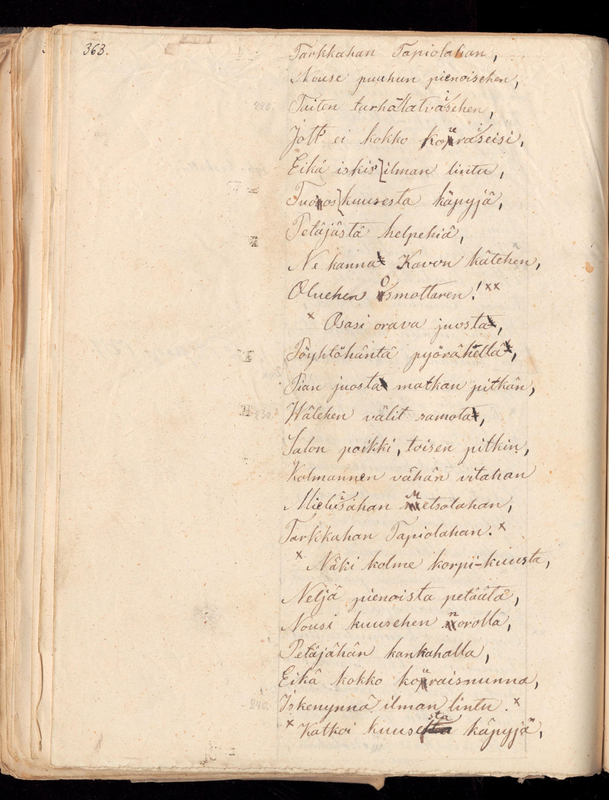 363.
Tarkkahan Tapiolahan,
Nouse puuhun pienoisehen,
Taiten turhalatvasehen,
Jott' ei kokko kouraseisi,
Eikä iskis' ilman lintu,
Tuo'os kuusesta käpyjä,
Petäjästä helpehiä,
Ne kanna Kavon kätehen,
Oluehen Osmottaren!
Osasi orava juosta,
Töyhtöhäntä pyörähellä,
Pian juosta matkan pitkän,
Wälehen välit samota,
Salon poikki, toisen pitkin,
Kolmannen vähän vitahan
Mieluisahan Metsolahan,
Tarkkahan Tapiolahan.
Näki kolme korpi-kuusta,
Neljä pienoista petäätä,
Nousi kuusehen norolla,
Petäjähän kankahalla,
Eikä kokko kouraisnunna,
Iskenynnä ilman lintu.
Katkoi kuusesta käpyjä,